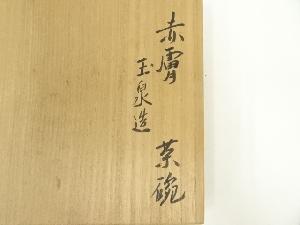 赤膚 茶碗
玉泉造